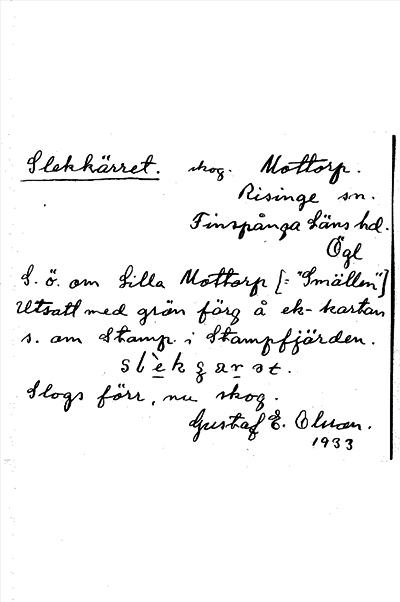 Slekkärret. skog. Mottorp.
Risinge sn.
Finspånga Läns hd.
Ögl
S. ö. om Lilla Mottorp [= "Smällen"]
Utsatt med grön färg å ek-kartan
s. om Stamp. i Stampfjärden.
Slogs förr, nu skog.
Gustaf E. Olsson.
1933